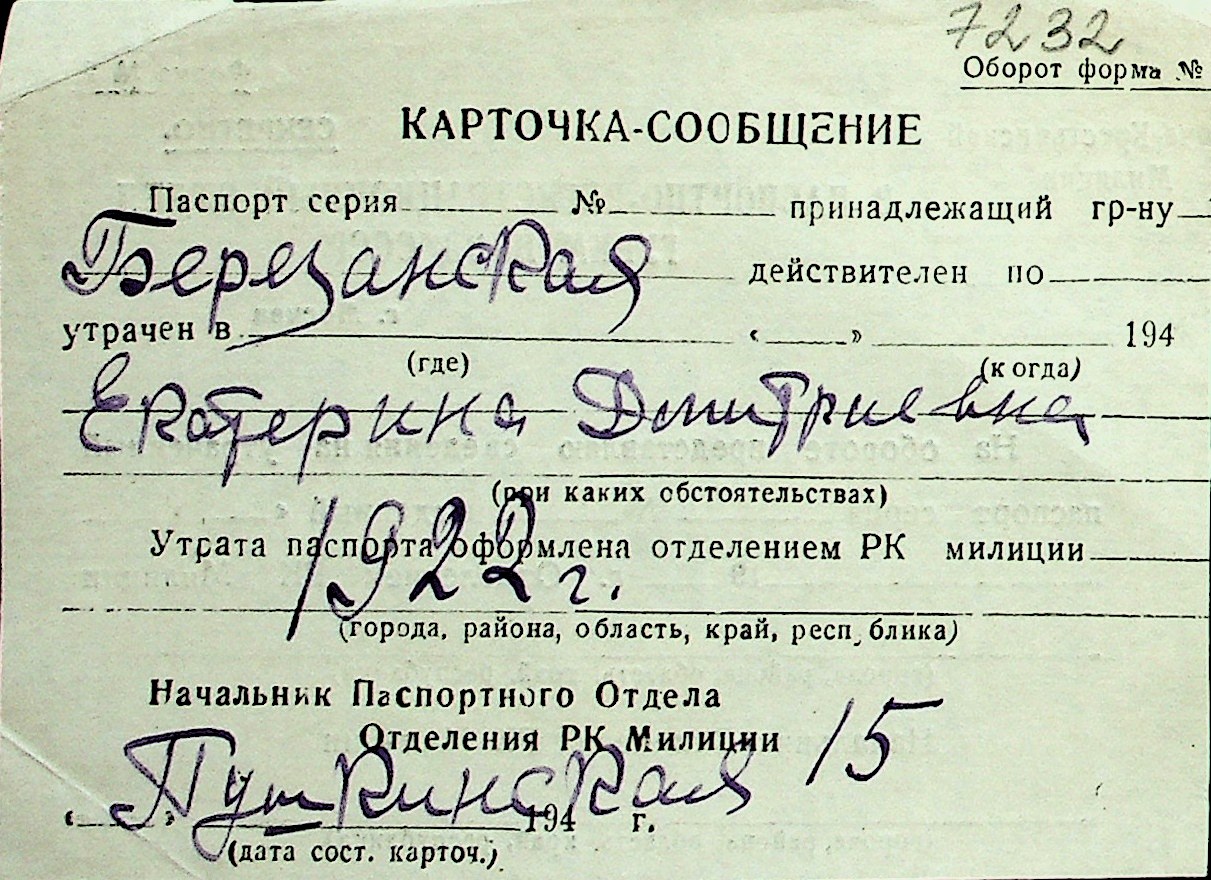 7232
Оборот форма №
КАРТОЧКА-СООБЩЕНИЕ
Паспорт серия № принадлежащий гр-ну
Березанская действителен по
утрачен в « » 194
(где) (когда)
Екатерина Дмитриевна
(при каких обстоятельствах)
Утрата паспорта оформлена отделением РК милиции
1922 г.
(города, района, область, край, респ блика)
Начальник Паспортного Отдела
Отделения РК Милиции
Пушкинская 15
« » 194 г.
(дата сост. карточ.)